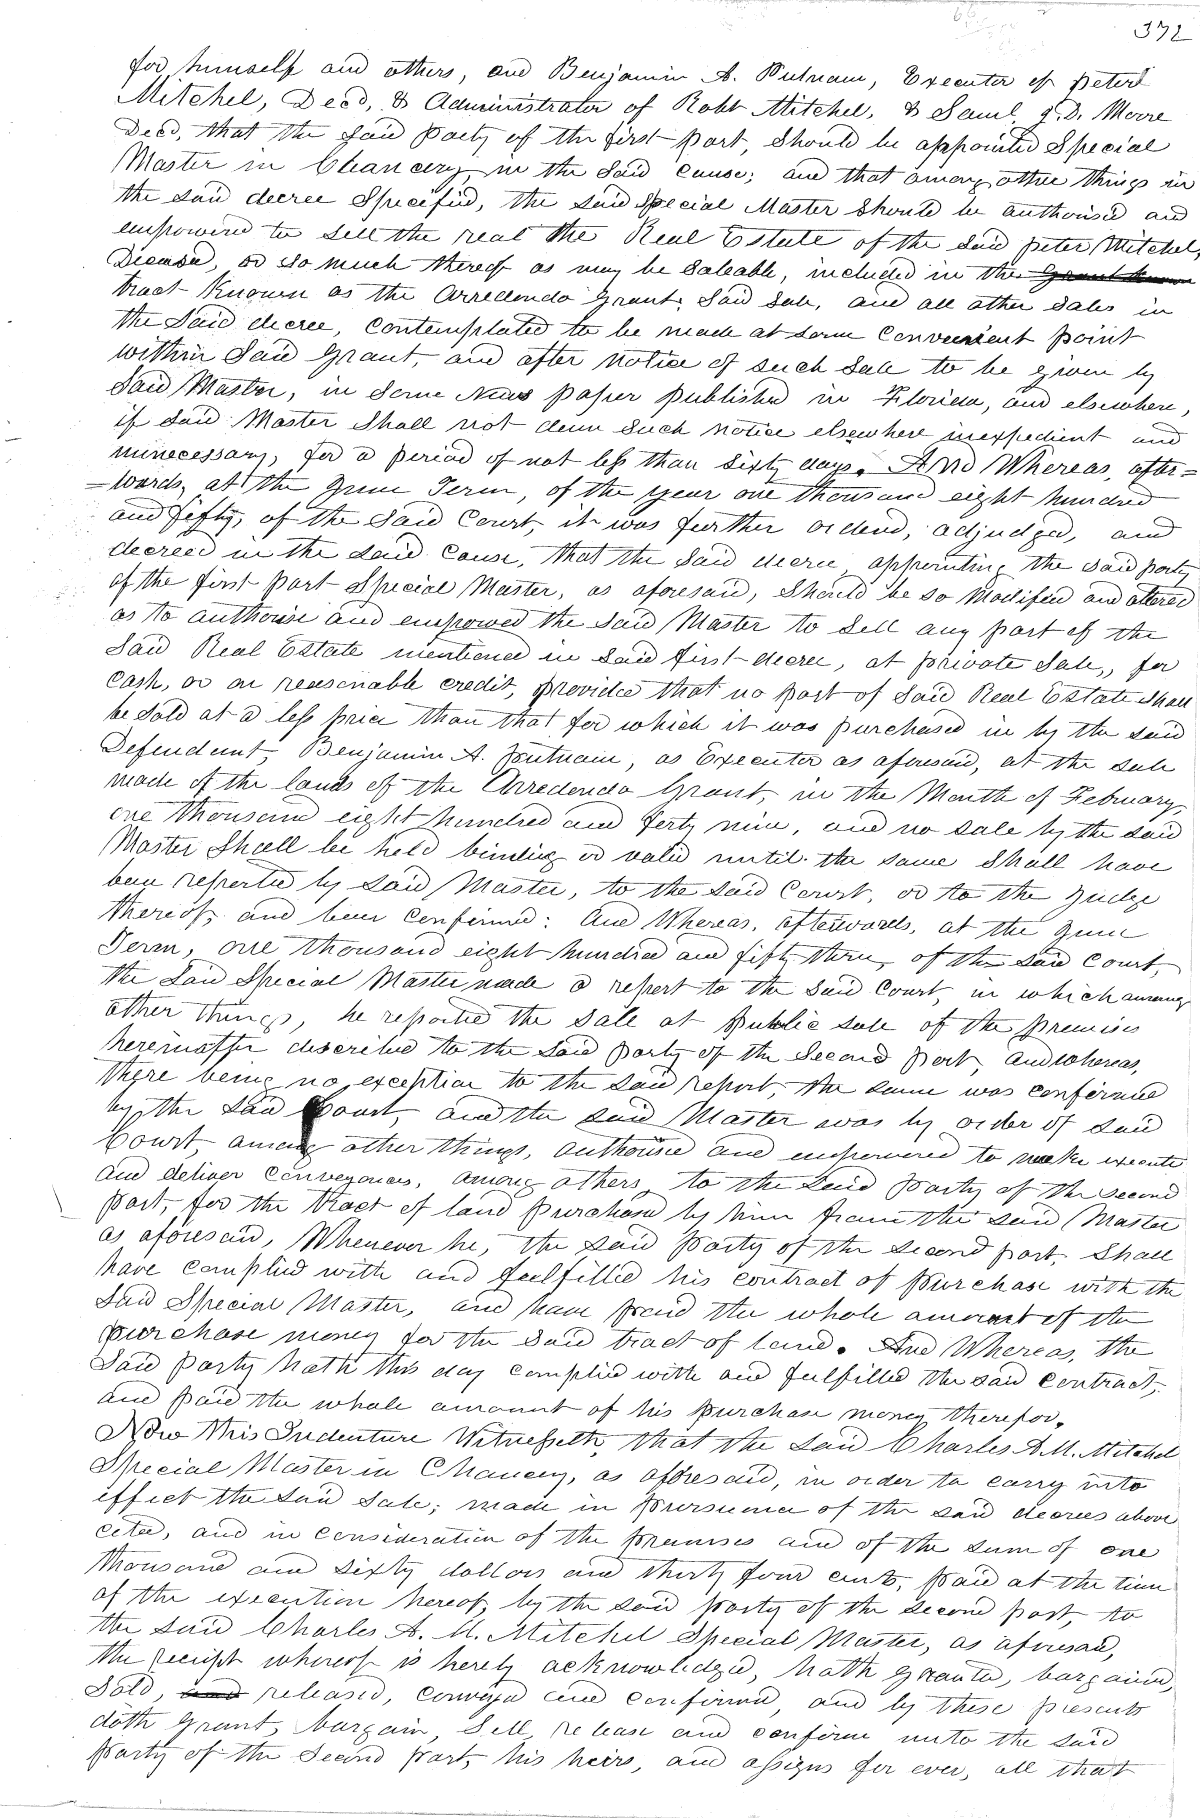 372
for himself and others, and Benjamin A. Putnam, Executor of Peter
Mitchel, Decd, & Administrator of Robt Mitchel, & Saml. J. D. Moore
Decd, that the said party of the first part, should be appointed Special
Master in Chancery, in the said cause; and that among other things in
the said decree Specified, the said Special Master should be authorised and
empowered to sell the real the Real Estate of the said Peter Mitchel,
Decease, or so much thereof as may be saleable, included in the
tract Known as the Arredondo Grant, said sale, and all other sales in
the said decree, contemplated to be made at some convenient point
within said Grant, and after notice of such sale to be given by
said Master, in some News paper published in Florida, and elsewhere,
if said Master shall not deem such notice elsewhere inexpedient and
unnecessary, for a period of not less than sixty days. And Whereas, after=
=wards, at the June Term, of the year one thousand eight hundred
and fifty, of the said Court, it was further orderd, adjudged, and
decreed in the said cause, that the said decree, appointing the said party
of the first part Special Master, as aforesaid, should be so Modified and altered
as to authorise and empower the said Master to sell any part of the
said Real Estate mentioned in said first decree, at private sale, for
Cash, or on reasonable credit, provided that no part of said Real Estate shall
be sold at a less price than that for which it was purchased in by the said
Defendant, Benjamin A. Putnam, as Executor as aforesaid, at the sale
made of the lands of the Arredondo Grant, in the Month of February,
one thousand eight hundred and forty nine, and no sale by the said
Master Shall be held binding or valid until the same shall have
been reported by said Master, to the said Court, or to the Judge
thereof, and been confirmed: And Whereas, afterwards, at the June
Term, one thousand eight hundred and fifty three, of the said Court,
the said Special Master made a report to the said Court, in which among
other things, he reported the sale at public sale of the premises
hereinafter described to the said party of the second part, and whereas,
there being no exception to the said report, the same was confirmed
by the said Court, and the said Master was by order of said
Court, among other things, authorised and empowered to make execute
and deliver conveyances, among others, to the said party of the second
part, for the tract of land purchased by him from the said Master
as aforesaid, Whenever he, the said party of the second part, shall
have complied with and fulfilled his contract of purchase with the
said Special Master, and have paid the whole amount of the
purchase money for the said tract of land. And Whereas, the
said party hath this day complied with and fulfilled the said contract,
and paid the whole amount of his purchase money therefor.
Now this Indenture Witnesseth, that the said Charles A. M. Mitchel
Special Master in Chancery, as aforesaid, in order to carry into
effect the said sale; made in pursuance of the said decrees above
cited, and in consideration of the premises and of the sum of one
thousand and sixty dollars and thirty four cents, paid at the time
of the execution hereof, by the said party of the second part, to
the said Charles A. M. Mitchel Special Master, as aforesaid,
the receipt whereof is hereby acknowledged, hath granted, bargained,
sold, and released, conveyed and confirmed, and by these presents
doth grant, bargain, sell, release and confirm unto the said
party of the second part, his heirs, and assigns for ever, all that